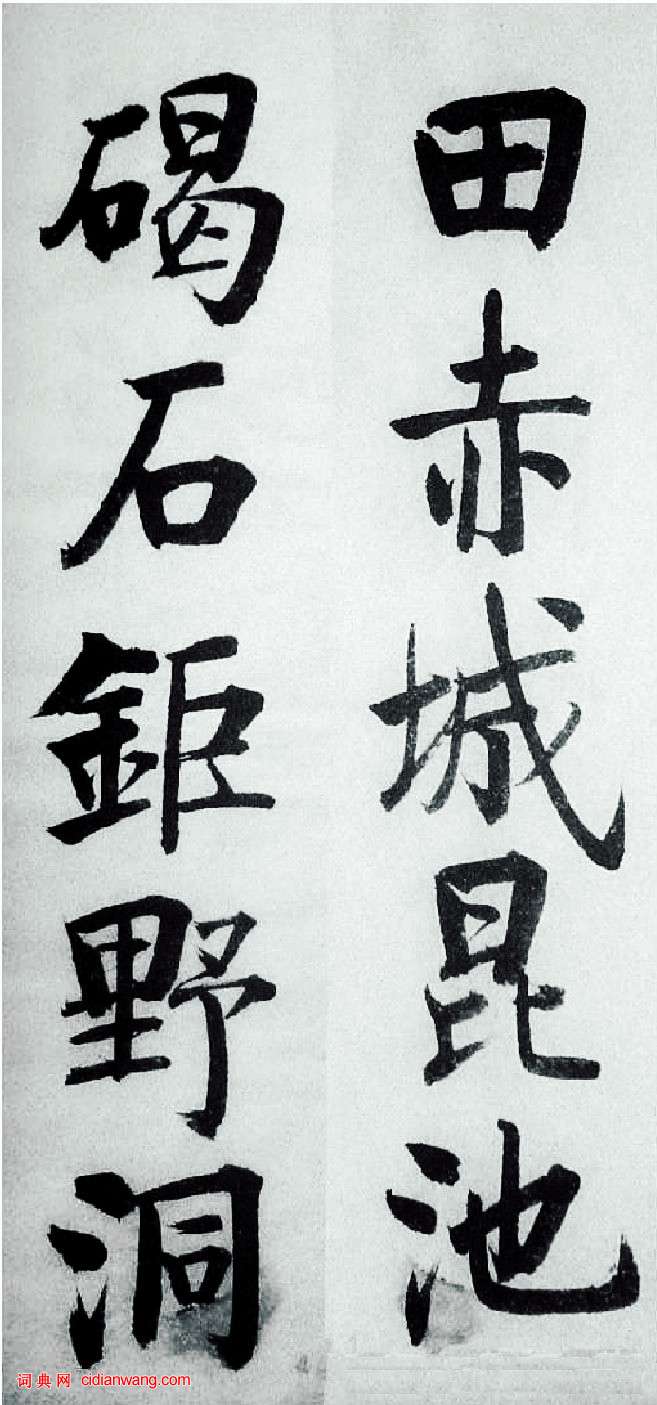 田赤城昆池
碣石鉅野洞
词典网 cidianwang.com